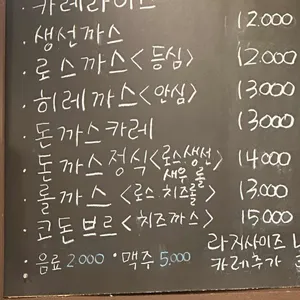 카레라이스 12.000
· 생선까스 12.000
· 로스까스<등심> 13000
· 히레까스<안심> 13000
· 돈까스카레 14000
· 돈까스정식<로스생선 새우 롤> 13.000
· 롤까스<로스 치즈롤> 15.000
· 코돈브르<치즈까스>
· 음료 2.000 · 맥주 5.000
라지사이즈
카레추가